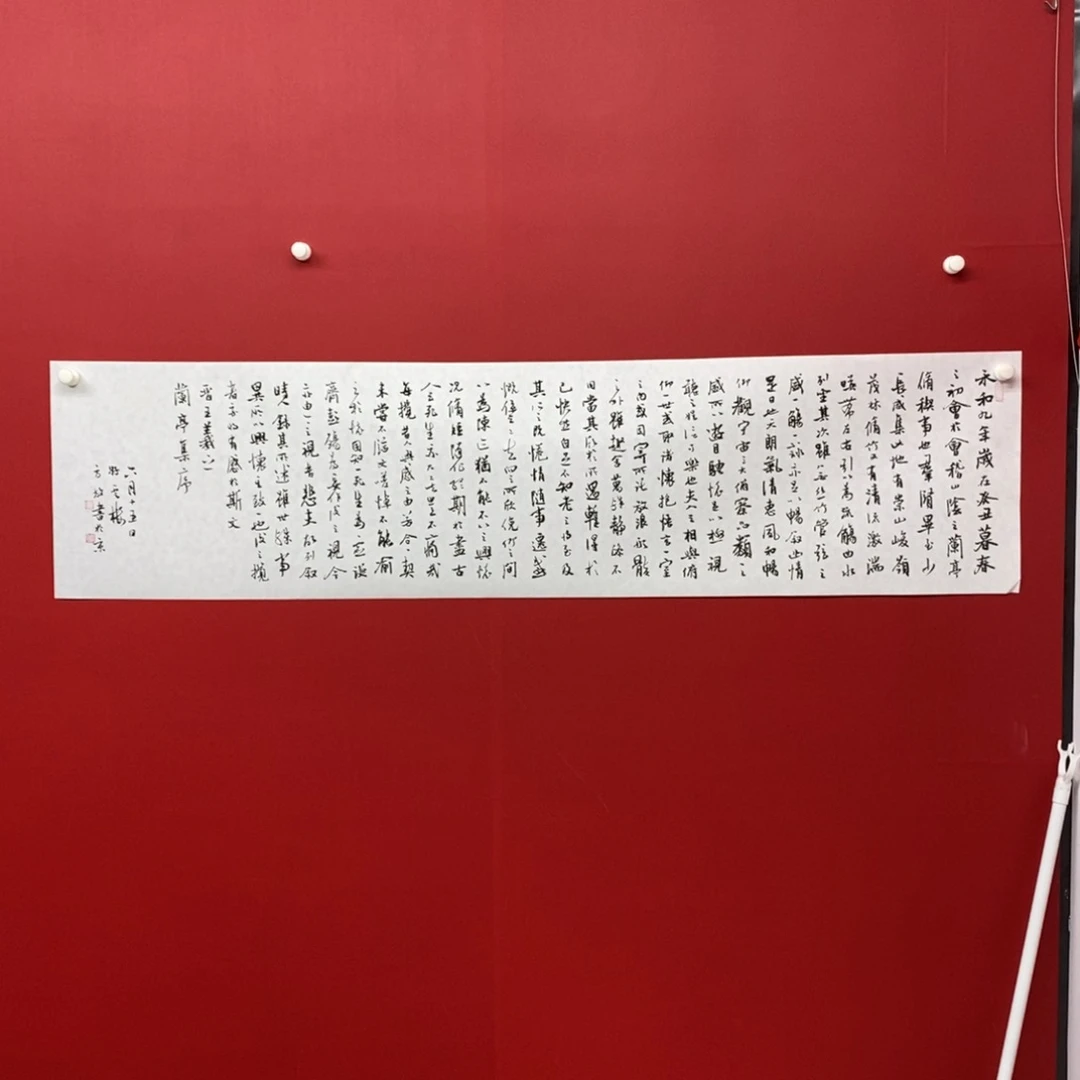 永和九年歲在癸丑暮春
之初會於會稽山陰之蘭亭
脩稧事也羣賢畢至少
長咸集此地有崇山峻嶺
茂林脩竹又有清流激湍
暎帶左右引以為流觴曲水
列坐其次雖無絲竹管弦之
盛一觴一詠亦足以暢叙幽情
是日也天朗氣清惠風和暢
仰觀宇宙之大俯察品類之
盛所以遊目騁懷足以極視
聽之娛信可樂也夫人之相與俯
仰一世或取諸懷抱悟言一室
之內或因寄所託放浪形骸
之外雖趣舍萬殊靜躁不
同當其欣於所遇暫得於
己怏然自足不知老之將至及
其所之既惓情隨事遷感
慨係之矣向之所欣俛仰之間
以為陳迹猶不能不以之興懷
況脩短隨化終期於盡古
人云死生亦大矣豈不痛哉
每攬昔人興感之由若合一契
未嘗不臨文嗟悼不能喻
之於懷固知一死生為虛誕
齊彭殤為妄作後之視今
亦由今之視昔悲夫故列叙
時人錄其所述雖世殊事
異所以興懷其致一也後之攬
者亦將有感於斯文
晋王羲之
蘭亭集序
六月十五日
書於京